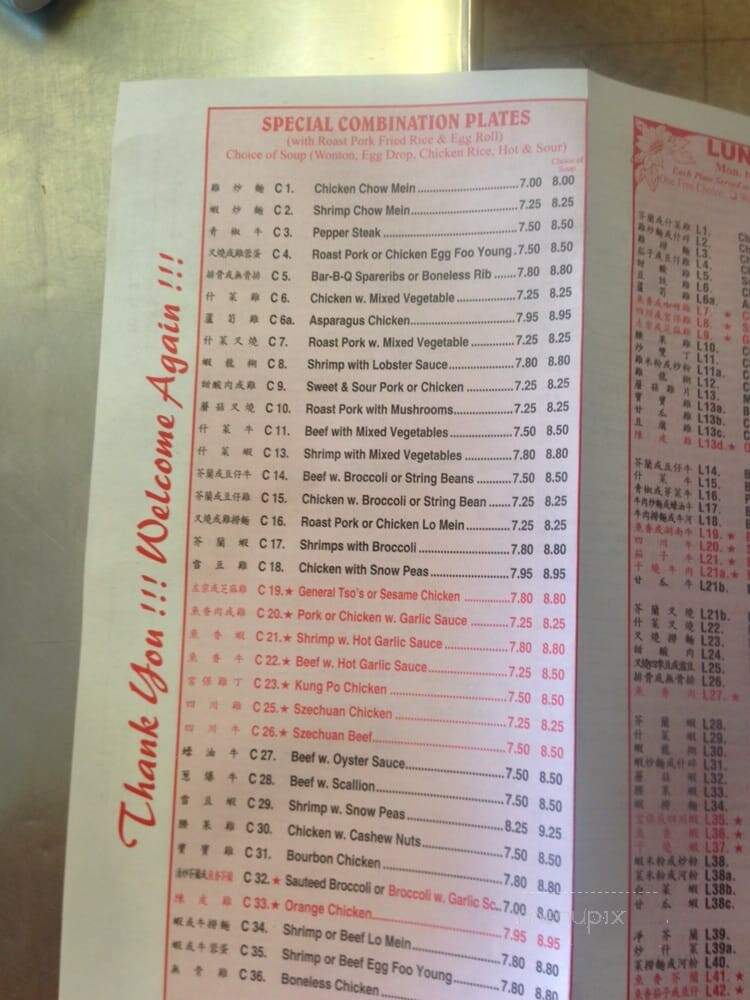 SPECIAL COMBINATION PLATES
(with Roast Pork Fried Rice & Egg Roll)
Choice of Soup (Wonton, Egg Drop, Chicken Rice, Hot & Sour)
Choice of
Soup
雞炒麵 C 1. Chicken Chow Mein 7.00 8.00
蝦炒麵 C 2. Shrimp Chow Mein 7.25 8.25
青椒牛 C 3. Pepper Steak 7.50 8.50
叉燒或雞蓉蛋 C 4. Roast Pork or Chicken Egg Foo Young 7.50 8.50
排骨或無骨排 C 5. Bar-B-Q Spareribs or Boneless Rib 7.80 8.80
什菜雞 C 6. Chicken w. Mixed Vegetable 7.25 8.25
蘆筍雞 C 6a. Asparagus Chicken 7.95 8.95
什菜叉燒 C 7. Roast Pork w. Mixed Vegetable 7.25 8.25
蝦龍糊 C 8. Shrimp with Lobster Sauce 7.80 8.80
甜酸肉或雞 C 9. Sweet & Sour Pork or Chicken 7.25 8.25
蘑菇叉燒 C 10. Roast Pork with Mushrooms 7.25 8.25
什菜牛 C 11. Beef with Mixed Vegetables 7.50 8.50
什菜蝦 C 13. Shrimp with Mixed Vegetables 7.80 8.80
芥蘭或豆仔牛 C 14. Beef w. Broccoli or String Beans 7.50 8.50
芥蘭或豆仔雞 C 15. Chicken w. Broccoli or String Bean 7.25 8.25
叉燒或雞撈麵 C 16. Roast Pork or Chicken Lo Mein 7.25 8.25
芥蘭蝦 C 17. Shrimps with Broccoli 7.80 8.80
雪豆雞 C 18. Chicken with Snow Peas 7.95 8.95
左宗或芝麻雞 C 19.★ General Tso's or Sesame Chicken 7.80 8.80
魚香肉或雞 C 20.★ Pork or Chicken w. Garlic Sauce 7.25 8.25
魚香蝦 C 21.★ Shrimp w. Hot Garlic Sauce 7.80 8.80
魚香牛 C 22.★ Beef w. Hot Garlic Sauce 7.25 8.50
宮保雞丁 C 23.★ Kung Po Chicken 7.50 8.50
四川雞 C 25.★ Szechuan Chicken 7.25 8.25
四川牛 C 26.★ Szechuan Beef 7.50 8.50
蠔油牛 C 27. Beef w. Oyster Sauce 7.50 8.50
蔥爆牛 C 28. Beef w. Scallion 7.50 8.50
雪豆蝦 C 29. Shrimp w. Snow Peas 8.25 9.25
腰果雞 C 30. Chicken w. Cashew Nuts 7.50 8.50
寶寶雞 C 31. Bourbon Chicken 7.80 8.80
C 32.★ Sauteed Broccoli or Broccoli w. Garlic Sc 7.00 8.00
陳皮雞 C 33.★ Orange Chicken 7.95 8.95
蝦或牛撈麵 C 34. Shrimp or Beef Lo Mein 7.80 8.80
蝦或牛蓉蛋 C 35. Shrimp or Beef Egg Foo Young 7.80 8.80
無骨雞 C 36. Boneless Chicken
Thank You !!! Welcome Again !!!
LUN
Mon.
Each Plate Served
芥蘭或什菜雞 L1.
雞炒麵或什碎 L2.
L3.
茄子或豆仔雞 L4.
甜酸雞 L5.
豆豉雞 L6.
蘆筍雞 L6a.
L7. ★
四川或宮保雞 L8. ★
左宗或芝麻雞 L9. ★
腰果雞 L10.
炒雙丁 L11.
雞米粉或炒粉 L11a.
雞龍糊 L12.
蘑菇雞片 L13.
寶寶雞 L13a.
甘瓜雞 L13b.
豆腐雞 L13c.
陳皮雞 L13d.★
芥蘭或豆仔牛 L14.
什菜牛 L15.
青椒或芽菜牛 L16.
牛肉炒麵或蠔油牛 L17.
牛肉撈麵或牛河 L18.
魚香或湖南牛 L19. ★
四川牛 L20. ★
茄子牛 L21. ★
干燒牛肉 L21a.★
甘瓜牛 L21b.
芥蘭叉燒 L21b.
什菜叉燒 L22.
叉燒撈麵 L23.
甜酸肉 L24.
L25.
排骨或無骨排 L26.
魚香肉 L27. ★
芥蘭蝦 L28.
什菜蝦 L29.
蝦龍糊 L30.
蝦炒麵或什碎 L31.
蘑菇蝦 L32.
腰果蝦 L33.
蝦撈麵 L34.
宮保或四川蝦 L35. ★
魚香蝦 L36. ★
干燒蝦 L37. ★
蝦米粉或炒粉 L38.
菜米粉或河粉 L38a.
什菜蝦 L38b.
甘瓜蝦 L38c.
淨芥蘭 L39.
炒什菜 L39a.
菜撈麵或河粉 L40.
魚香芥蘭 L41. ★
魚香茄子或什 L42. ★